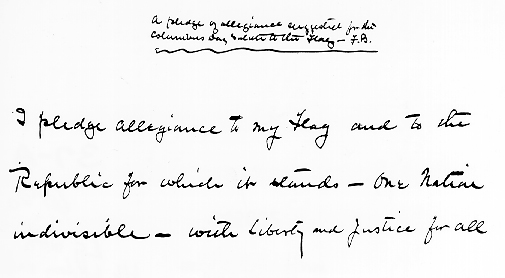 A pledge of allegiance suggested for the
Columbus Day Salute to the Flag — F.B.
I pledge allegiance to my Flag and to the
Republic for which it stands — One Nation
indivisible — with Liberty and Justice for all